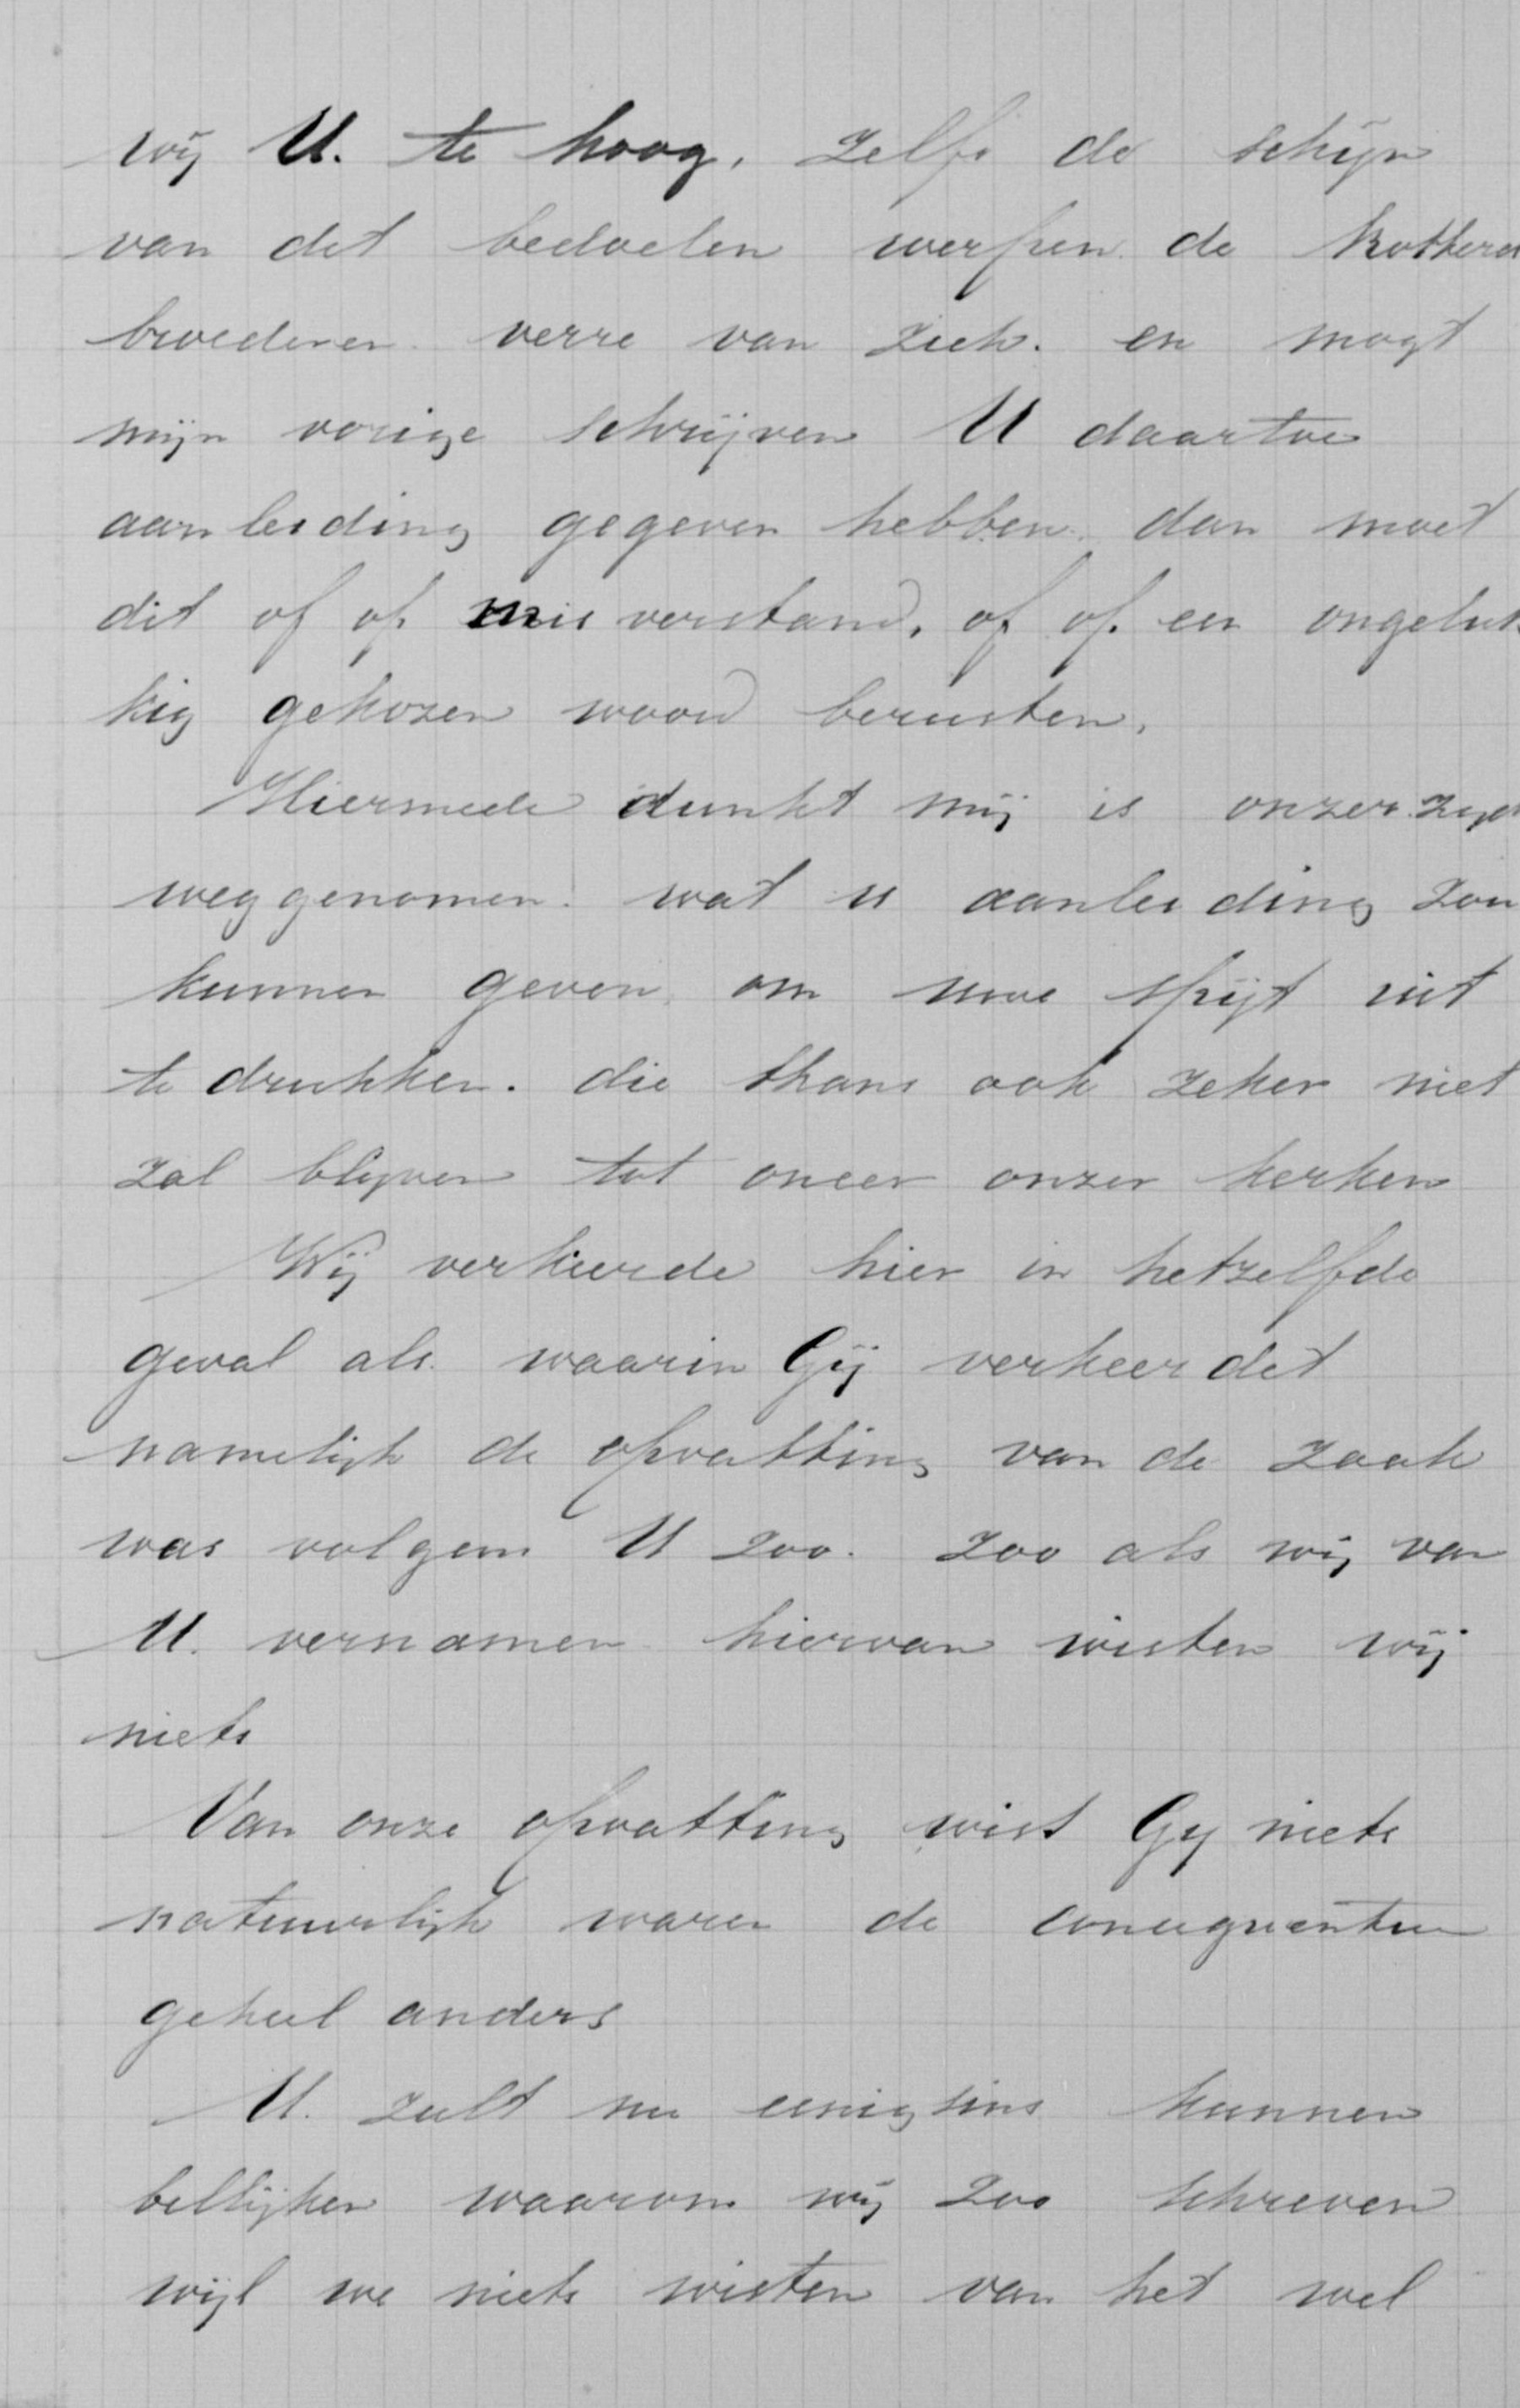 wij U. te hoog. Zelfs de schijn
van dit bedoelen werpen de Rotterd
broederen verre van zich. en mogt
mijn vorige schrijven U daartoe
aanleiding gegeven hebben. dan moet
dit of op misverstand, of op een ongeluk
kig gekozen woord berusten.
Hiermede dunkt mij is onzer zijds
weggenomen. wat U aanleiding zou
kunnen geven om uwe spijt uit
te drukken. die thans ook zeker niet
zal blijven tot oneer onzer kerken
Wij verkeerde hier in hetzelfde
geval als waarin Gij verkeerdet
namelijk de opvatting van de zaak
was volgens U zoo. zoo als wij van
U. vernamen hiervan wisten wij
niets
Van onze opvatting wist Gij niets
natuurlijk waren de consequentien
geheel anders
U. zult nu eenigsins kunnen
billijken waarom wij zoo schreven
wijl we niets wisten van het wel